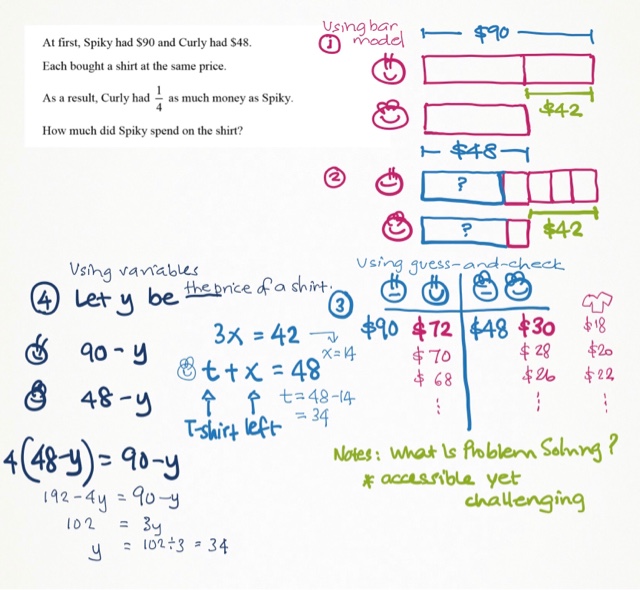 At first, Spiky had $90 and Curly had $48.
Each bought a shirt at the same price.
As a result, Curly had 1/4 as much money as Spiky.
How much did Spiky spend on the shirt?
Using bar
① model
$90
$42
$48
②
?
?
$42
Using guess-and-check
③
$90 $72 $48 $30 $18
$70 $28 $20
$68 $26 $22
⋮ ⋮ ⋮
3x = 42
x=14
t + x = 48
t = 48-14
= 34
T-shirt left
Using variables
④ Let y be the price of a shirt.
90-y
48-y
4(48-y) = 90-y
192-4y = 90-y
102 = 3y
y = 102÷3 = 34
Notes: What Is Problem Solving?
* accessible yet
challenging